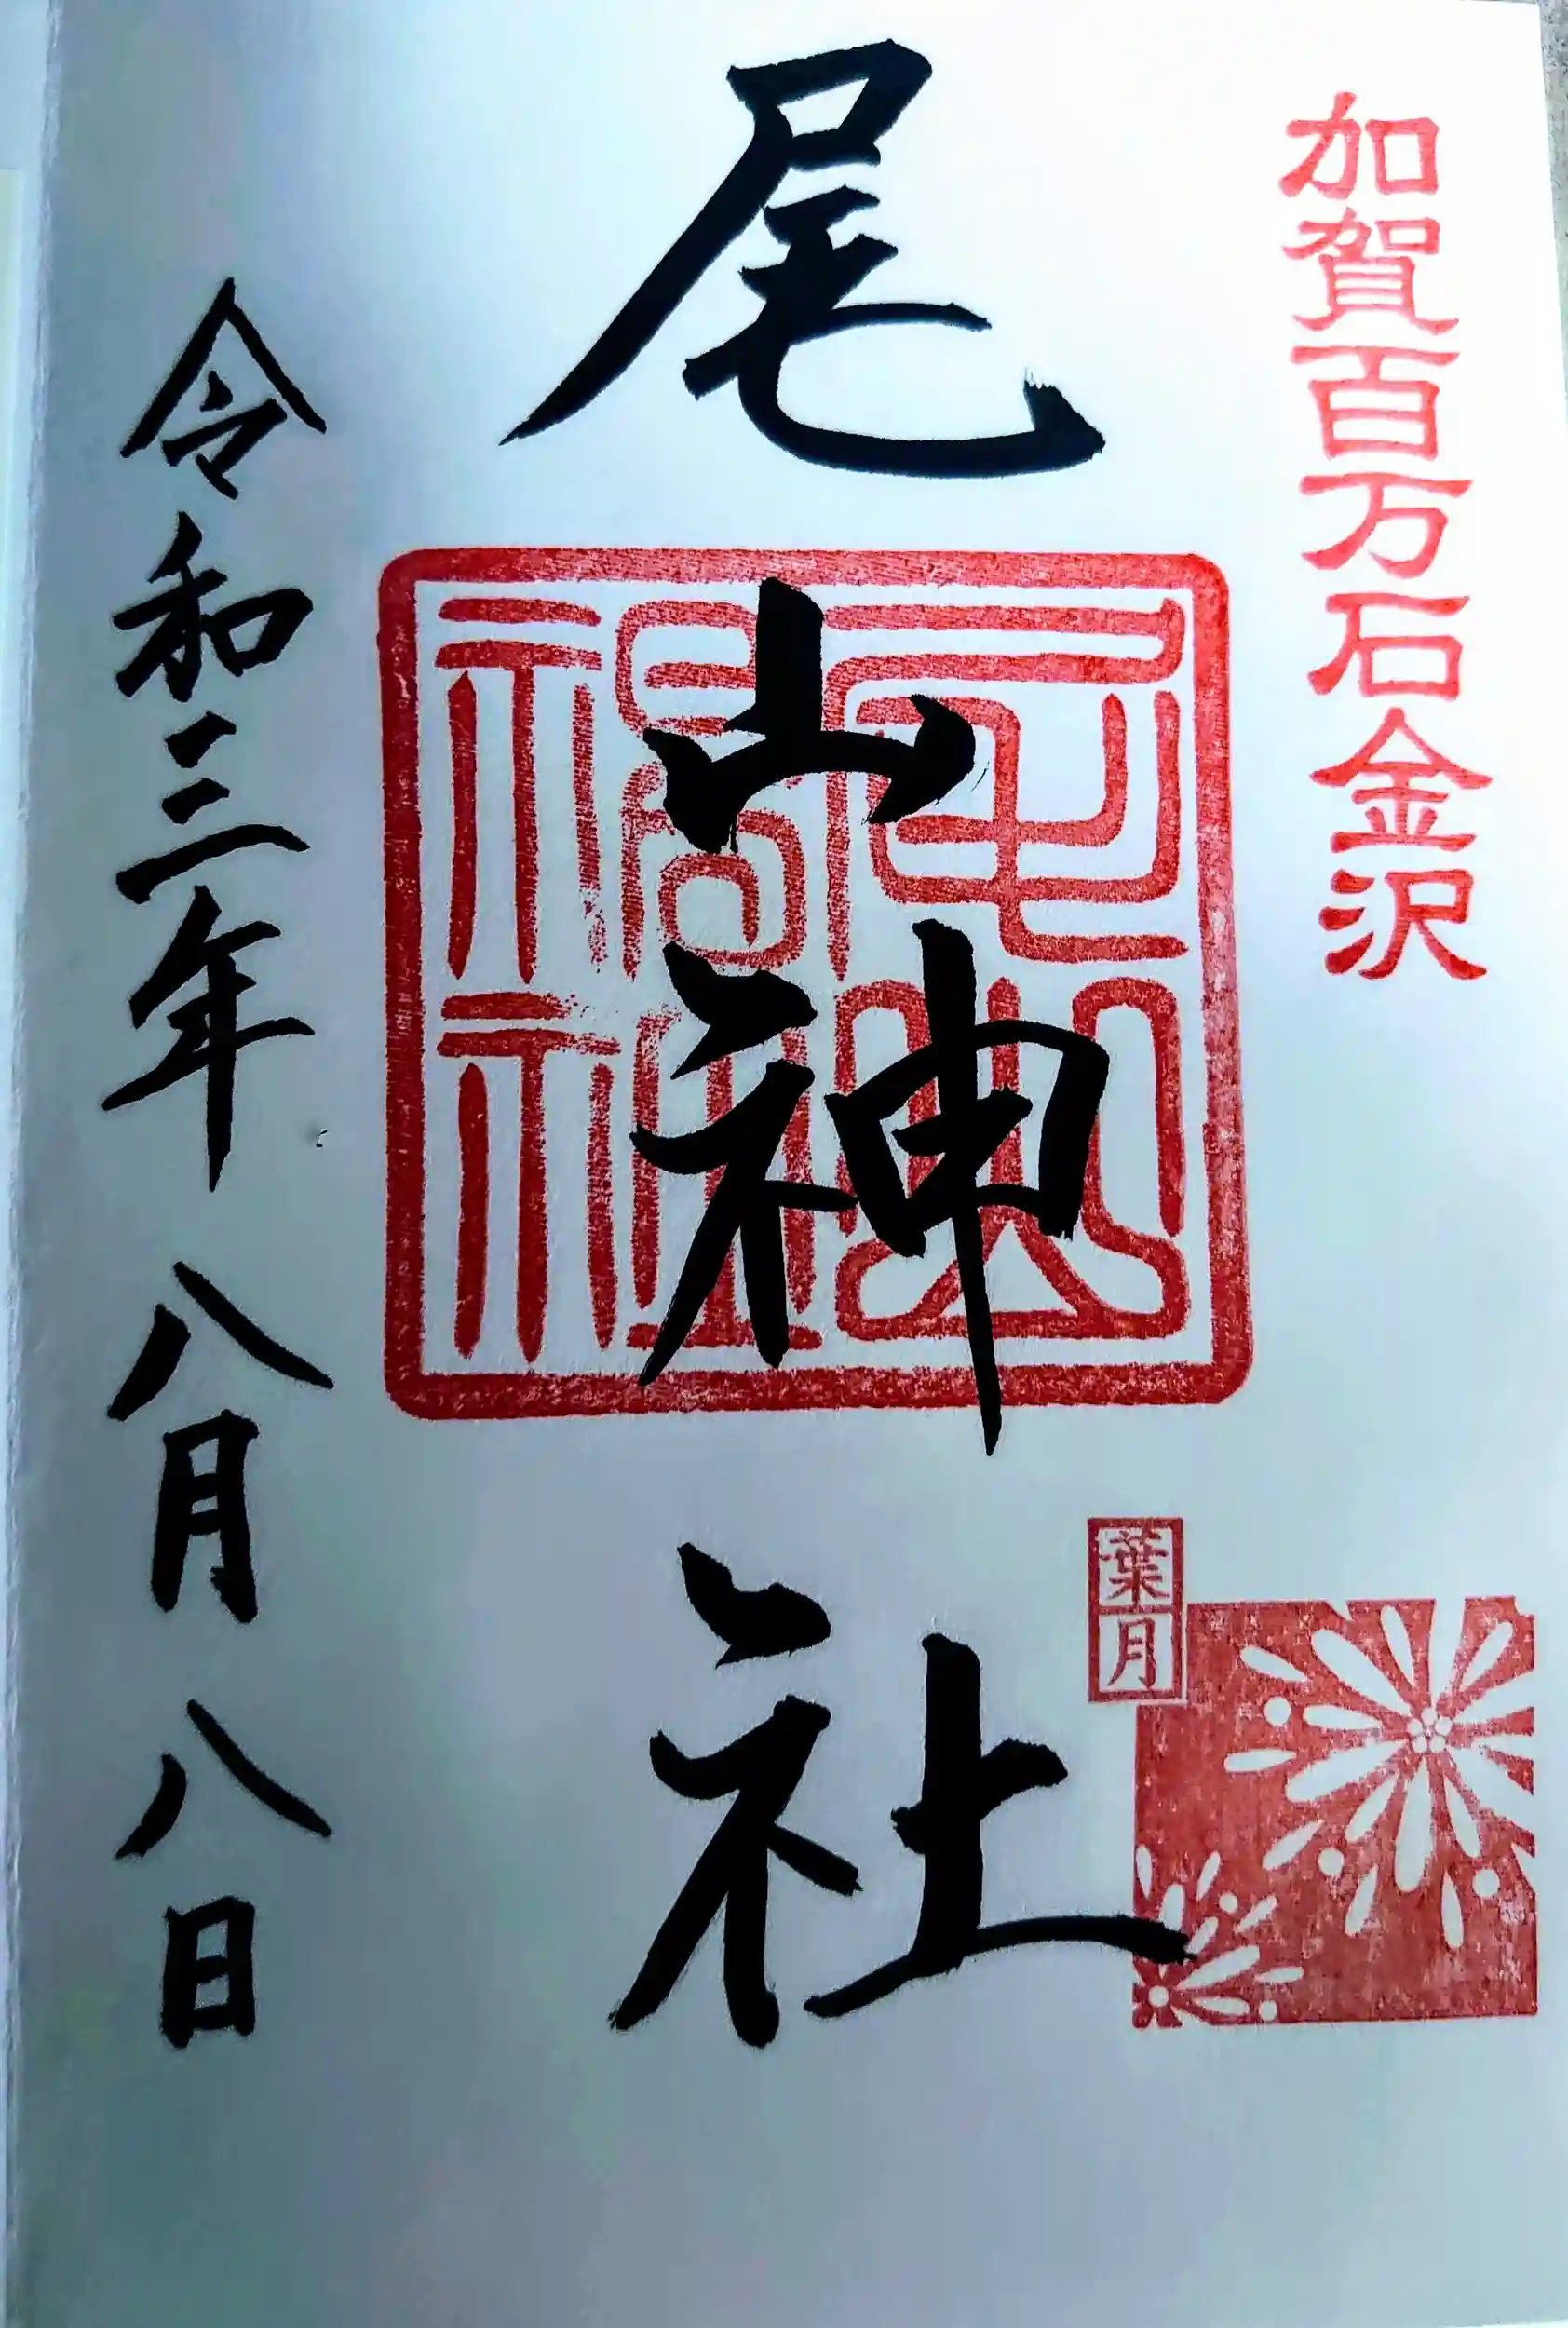 加賀百万石金沢
尾山神社
尾山神社
葉月
令和三年 八月 八日